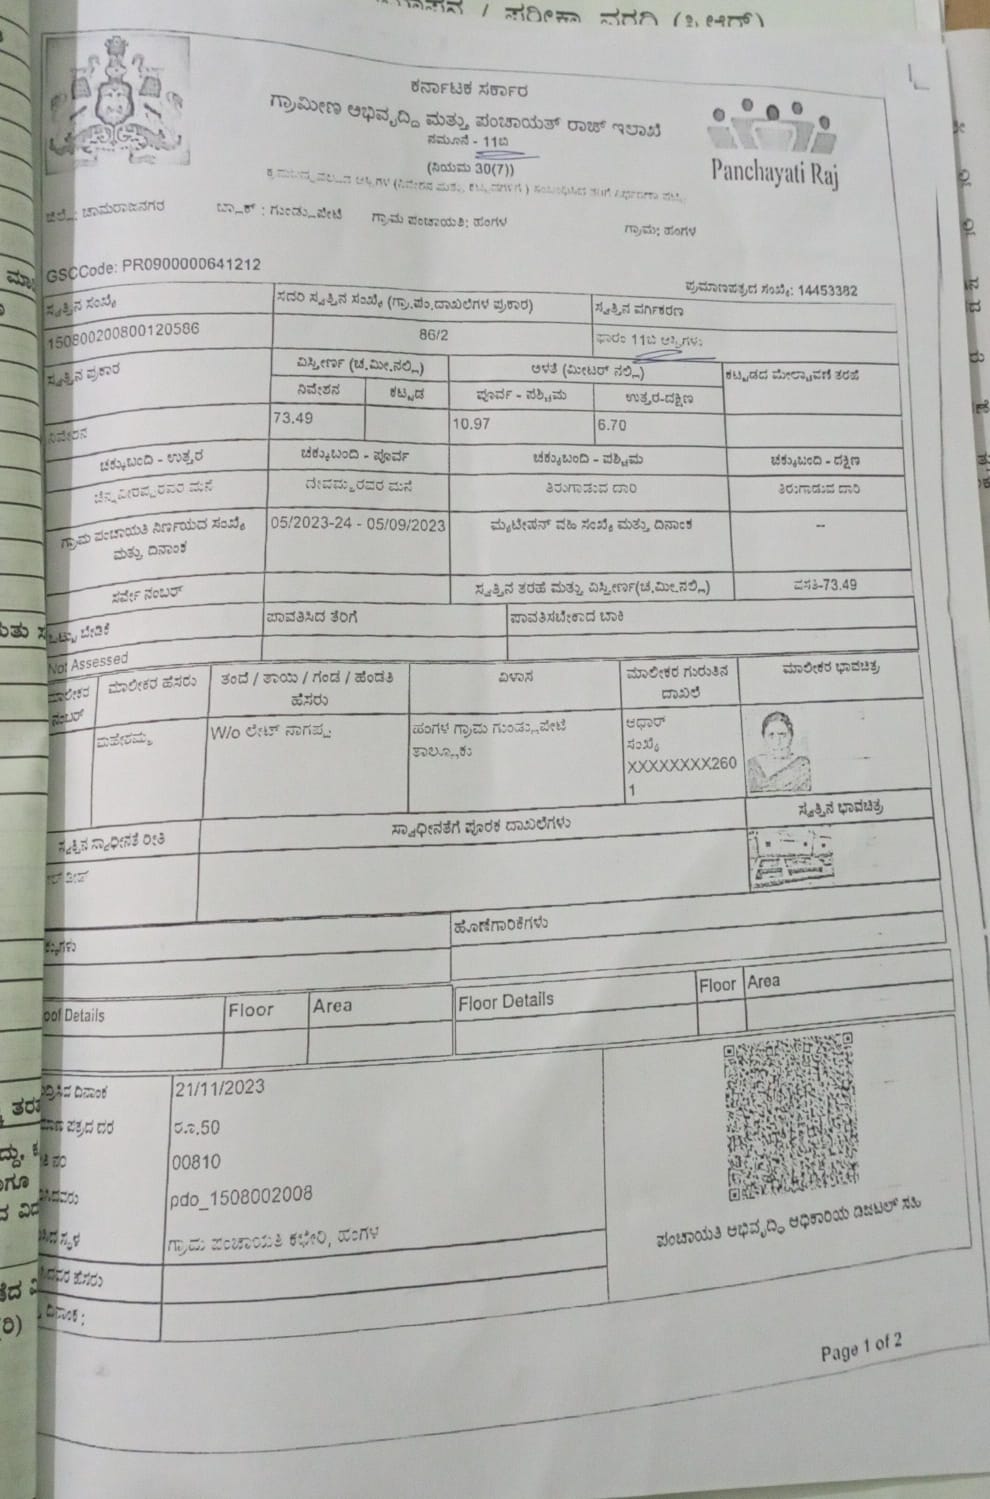 ಕರ್ನಾಟಕ ಸರ್ಕಾರ
ಗ್ರಾಮೀಣ ಅಭಿವೃದ್ಧಿ ಮತ್ತು ಪಂಚಾಯತ್ ರಾಜ್ ಇಲಾಖೆ
ನಮೂನೆ - 11ಬಿ
(ನಿಯಮ 30(7))
Panchayati Raj
ಜಿಲ್ಲೆ: ಚಾಮರಾಜನಗರ ಬ್ಲಾಕ್ : ಗುಂಡ್ಲುಪೇಟೆ ಗ್ರಾಮ ಪಂಚಾಯತಿ: ಹಂಗಳ ಗ್ರಾಮ: ಹಂಗಳ
GSCCode: PR0900000641212 ಪ್ರಮಾಣಪತ್ರದ ಸಂಖ್ಯೆ: 14453382
ಸ್ವತ್ತಿನ ಸಂಖ್ಯೆ ಸದರಿ ಸ್ವತ್ತಿನ ಸಂಖ್ಯೆ (ಗ್ರಾ.ಪಂ.ದಾಖಲೆಗಳ ಪ್ರಕಾರ) ಸ್ವತ್ತಿನ ವರ್ಗೀಕರಣ
150800200800120586 86/2 ಫಾರಂ 11ಬಿ ಆಸ್ತಿಗಳು
ಸ್ವತ್ತಿನ ಪ್ರಕಾರ ವಿಸ್ತೀರ್ಣ (ಚ.ಮೀ.ನಲ್ಲಿ) ಅಳತೆ (ಮೀಟರ್ ನಲ್ಲಿ) ಕಟ್ಟಡದ ಮೇಲ್ಛಾವಣಿ ತರಹೆ
ನಿವೇಶನ ಕಟ್ಟಡ ಪೂರ್ವ - ಪಶ್ಚಿಮ ಉತ್ತರ-ದಕ್ಷಿಣ
ನಿವೇಶನ 73.49 10.97 6.70
ಚಕ್ಕುಬಂದಿ - ಉತ್ತರ ಚಕ್ಕುಬಂದಿ - ಪೂರ್ವ ಚಕ್ಕುಬಂದಿ - ಪಶ್ಚಿಮ ಚಕ್ಕುಬಂದಿ - ದಕ್ಷಿಣ
ಮನೆ ದೇವಮ್ಮರವರ ಮನೆ ತಿರುಗಾಡುವ ದಾರಿ ತಿರುಗಾಡುವ ದಾರಿ
ಗ್ರಾಮ ಪಂಚಾಯತಿ ನಿರ್ಣಯದ ಸಂಖ್ಯೆ 05/2023-24 - 05/09/2023 ಮ್ಯುಟೇಷನ್ ವಹಿ ಸಂಖ್ಯೆ ಮತ್ತು ದಿನಾಂಕ --
ಮತ್ತು ದಿನಾಂಕ
ಸರ್ವೇ ನಂಬರ್ ಸ್ವತ್ತಿನ ತರಹೆ ಮತ್ತು ವಿಸ್ತೀರ್ಣ(ಚ.ಮೀ.ನಲ್ಲಿ) ವಸತಿ-73.49
ಒಟ್ಟು ಬೇಡಿಕೆ ಪಾವತಿಸಿದ ತೆರಿಗೆ ಪಾವತಿಸಬೇಕಾದ ಬಾಕಿ
Not Assessed
ಮಾಲೀಕರ ಮಾಲೀಕರ ಹೆಸರು ತಂದೆ / ತಾಯಿ / ಗಂಡ / ಹೆಂಡತಿ ವಿಳಾಸ ಮಾಲೀಕರ ಗುರುತಿನ ಮಾಲೀಕರ ಭಾವಚಿತ್ರ
ನಂಬರ್ ಹೆಸರು ದಾಖಲೆ
W/o ಲೇಟ್ ನಾಗಪ್ಪ ಹಂಗಳ ಗ್ರಾಮ ಗುಂಡ್ಲುಪೇಟೆ ಆಧಾರ್
ತಾಲ್ಲೂಕು ಸಂಖ್ಯೆ
XXXXXXXX260
1
ಸ್ವತ್ತಿನ ಸ್ವಾಧೀನತೆ ರೀತಿ ಸ್ವಾಧೀನತೆಗೆ ಪೂರಕ ದಾಖಲೆಗಳು ಸ್ವತ್ತಿನ ಭಾವಚಿತ್ರ
ಹೊಣೆಗಾರಿಕೆಗಳು
Details Floor Area Floor Details Floor Area
ದಿನಾಂಕ 21/11/2023
ಪತ್ರದ ದರ ರೂ.50
00810
pdo_1508002008
ಸ್ಥಳ ಗ್ರಾಮ ಪಂಚಾಯತಿ ಕಛೇರಿ, ಹಂಗಳ
ಹೆಸರು
ದಿನಾಂಕ :
ಪಂಚಾಯತಿ ಅಭಿವೃದ್ಧಿ ಅಧಿಕಾರಿಯ ಡಿಜಿಟಲ್ ಸಹಿ
Page 1 of 2